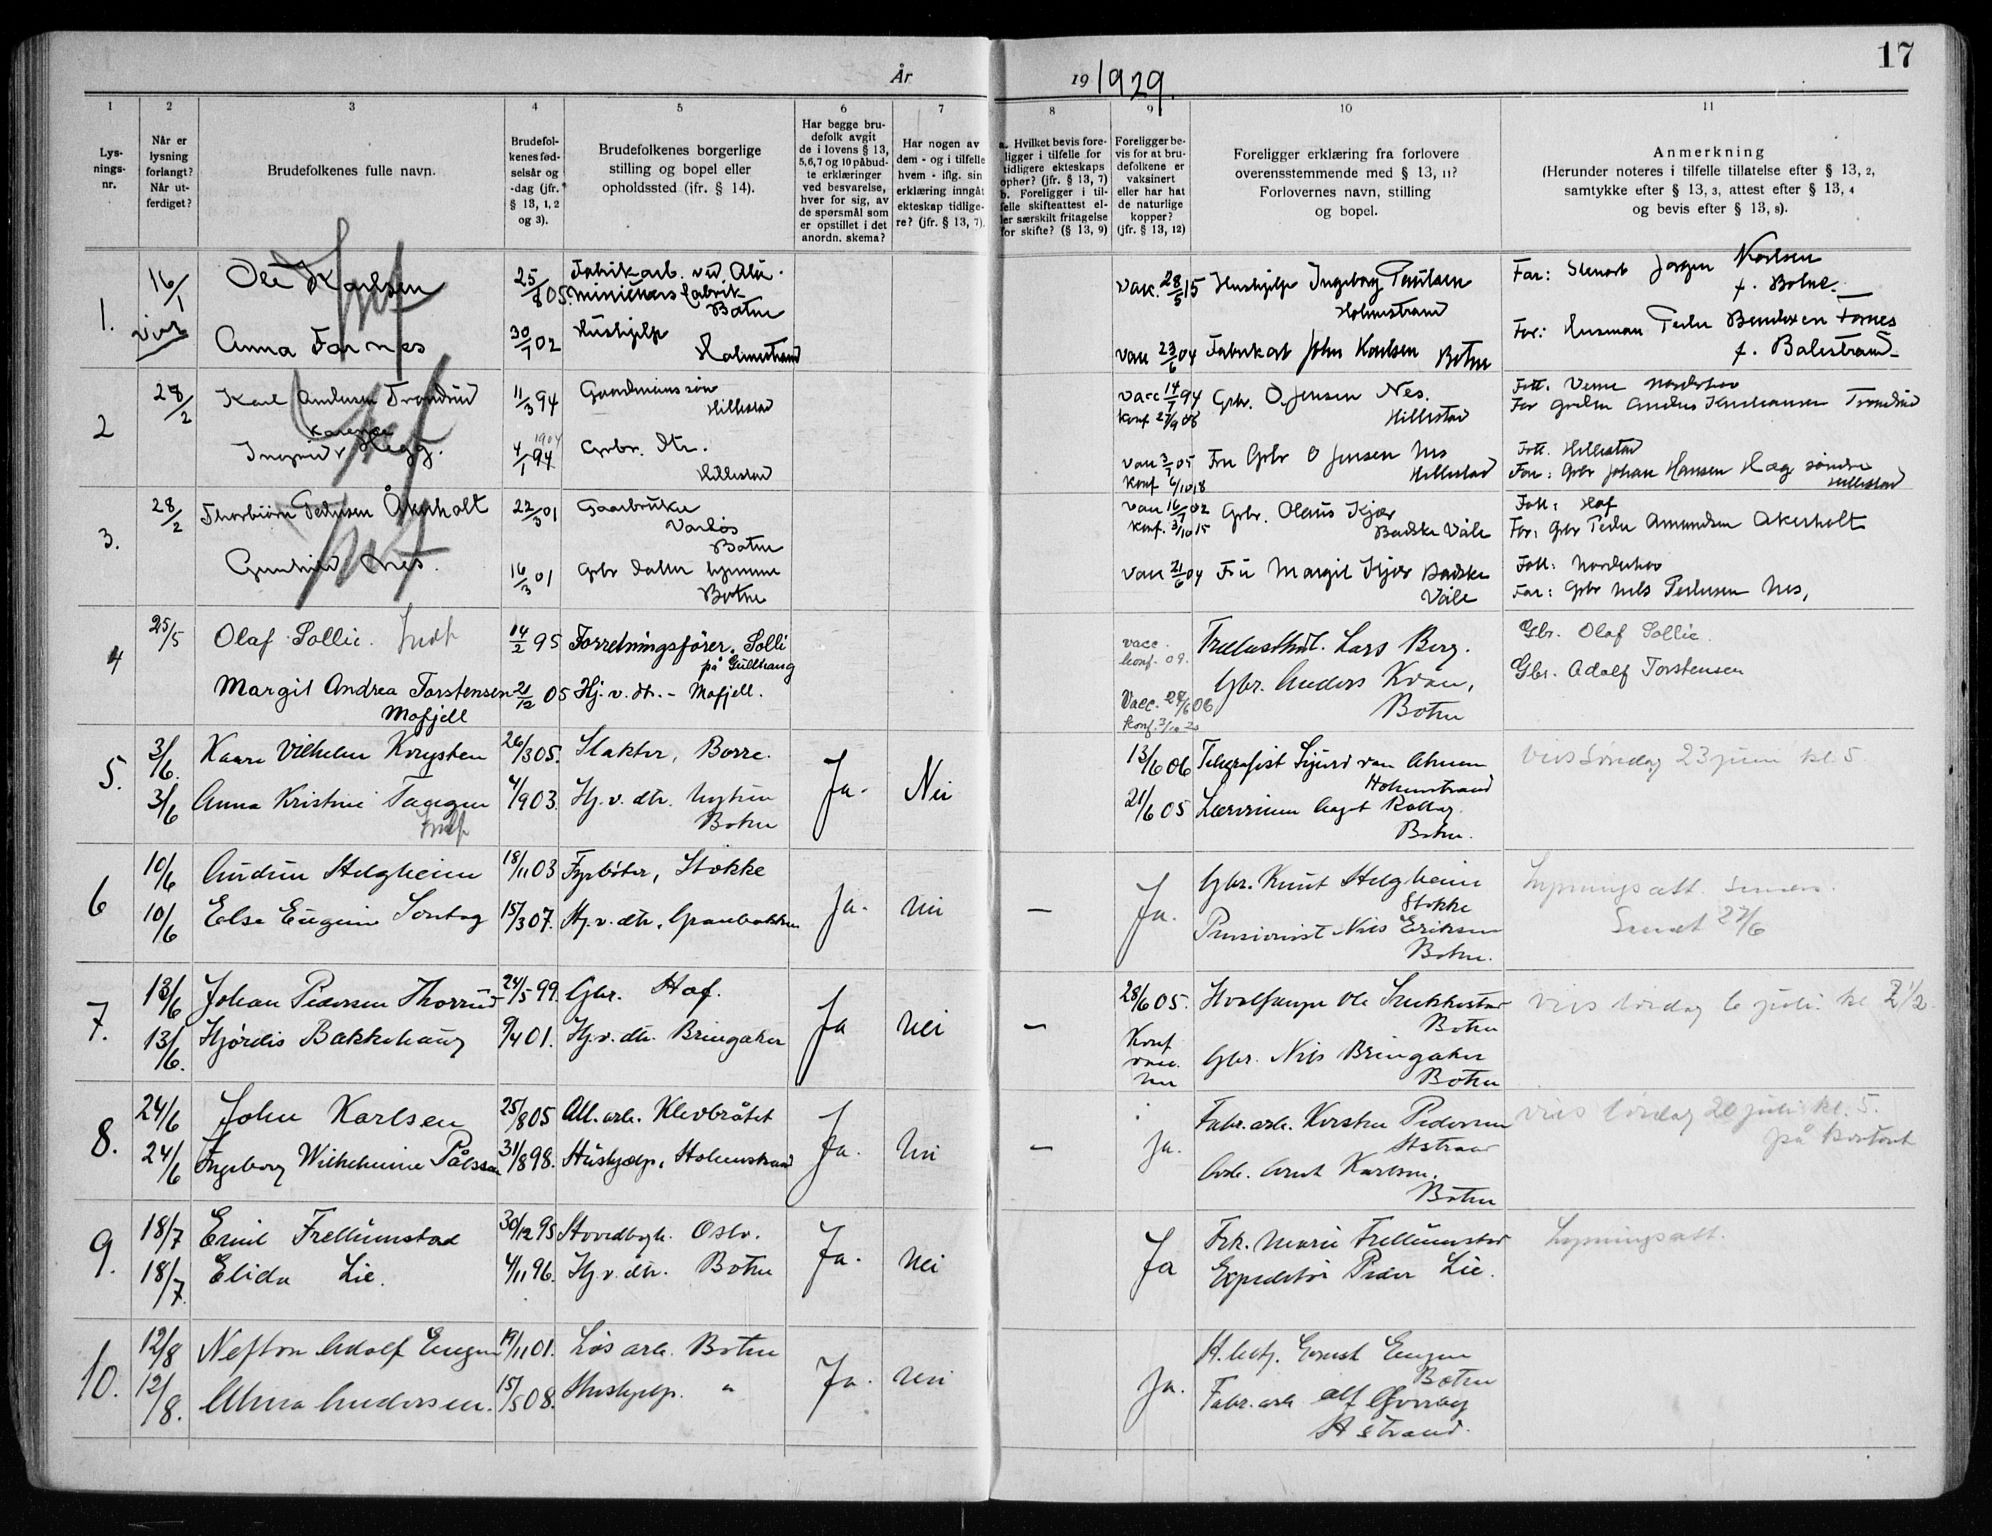 17
År 19 1929.
1 2 3 4 5 6 7 8 9 10 11
Lys-
nings-
nr.
Når er
lysning
forlangt?
Når ut-
ferdiget?
Brudefolkenes fulle navn.
Brudefol-
kenes fød-
selsår og
-dag (jfr.
§ 13, 1, 2
og 3).
Brudefolkenes borgerlige
stilling og bopel eller
opholdssted (ifr. § 14).
Har begge bru-
defolk avgit
de i lovens § 13,
5,6,7 og 10 påbud-
te erklæringer
ved besvarelse,
hver for sig, av
de spørsmål som
er opstillet i det
anordn. skema?
Har nogen av
dem - og i tilfelle
hvem - iflg. sin
erklæring inngåt
ekteskap tidlige-
re? (jfr. § 13, 7).
a. Hvilket bevis fore-
ligger i tilfelle for
tidligere ekteskaps
ophør? (jfr. § 13, 7)
b. Foreligger i til-
felle skifteattest el-
ler særskilt fritagelse
for skifte? (§ 13, 9)
Foreligger be-
vis for at bru-
defolkene er
vaksinert
eller har hat
de naturlige
kopper?
(jfr. § 13, 12)
Foreligger erklæring fra forlovere
overensstemmende med § 13, 11?
Forlovernes navn, stilling
og bopel.
Anmerkning
(Herunder noteres i tilfelle tillatelse efter § 13, 2,
samtykke efter § 13, 3, attest efter § 13, 4
og bevis efter § 13, 8).
1. 16/1 Ole Karlsen 25/8 05. Fabrikarb. ved Alu-
miniumsfabrik
Botne
vak. 28/5 15 Hushjelp Ingeborg Paulsen
Holmestrand
Far: Jørgen Karlsen
f. Botne.
viet Anna Farnes 30/7 02 Hushjelp
Holmestrand
vac 23/6 04 Fabrikarb John Karlsen Botne
Far: Husman Peder Bendixen Farnes
f. Balestrand
2 28/2 Karl Andersen Trondrud 11/3 94 Gaardmannssøn
Hillestad
vacc 14/7 94
Konf 27/9 08
Grbr. O. Jensen Nes.
Hillestad
Fött. Verne Norderhov
Far Anders Trondrud
Ingrid Hegg. 4/1 94 1904 Grbr. dtr.
Hillestad
vac 3/7 05
Konf 6/10 18
Fru Grbr O Jensen Nes
Hillestad
Fött. Hillestad
Far: Grbr Johan Hansen Hæg søndre
Hillestad
3. 28/2 Thorbjörn Pedersen Åkerholt 22/3 01 Gaarbruker
Varløs
Botne
vac 16/7 02
Konf. 3/10 15
Grbr. Olaus Kjær
Badske Våle
Fött: Hof
Far: Grbr Peder Amundsen Akerholt
Gunhild Nes. 16/3 01 Grbr datter hjemme
Botne
vac 21/6 04 Fru Margit Kjær Badske
Våle
Fött: Norderhov
Far: Grbr Nils Pedersen Nes,
4 25/5 Olaf Sollie. Indf 14/2 95 Forretningsfører. Solli
på Gullhaug
vacc.
konf. 09.
Lars Berg.
Gbr. Olaf Sollie.
Margit Andrea Torstensen
Mofjell
21/12 05 Hj. v. dtr. - Mofjell.
Vacc. 27/6 06
Konf. 3/10 20
Gbr. Anders Kvan,
Botne
Gbr. Adolf Torstensen
5. 3/6. Kaare Vilhelm Knygsten 26/3 05. Slakter, Borre. Ja. Nei 13/6 06 Telegrafist Sigurd van Ahnen
Holmestrand
Vies Søndag 23 juni kl. 5
3/6 Anna Kristine Tangen
Indf
4/9 03. Hj. v. dtr. Nygten
Botne
21/6 05 Lærerinne Aagot Rollag
Botne.
6 10/6 Audun Helgheim 18/11 03 Fyrbøter, Stokke Ja. Nei — Ja. Gbr. Knut Helgheim
Stokke
Lysningsatt. sendes.
Sendt 27/6
10/6 Else Eugenie Sontag 15/3 07. Hj. v. dtr. Granbakken
Pensionist Nils Eriksen
Botne.
7. 13/6 Johan Pedersen Thorrud 24/5 99. Gbr. Hof. Ja Nei — 28/6 05. Hvalfanger Ole Snekkestad
Botne
Vies lørdag 6 juli kl 2 1/2
13/6. Hjørdis Bakkehaug 9/4 01. Hj. v. dtr. Bringaker
Konf
vacc.
nei
Gbr. Nils Bringaker
Botne
8. 24/6 John Karlsen 25/8 05 All. arb. Klevbråtet Ja. Nei — Ja. Fabr. arb. Kirsten Pedersen
Hstrand
Vies lørdag 20 juli kl. 5.
på kontoret
24/6 Ingeborg Wilhelmine Pålssen 31/8 98. Hushjelp, Holmestrand
Arb. Arnt Karlsen.
Botne
9. 18/7 Emil Frellumstad 30/12 95 Hovedbogh. Oslo. Ja. Nei Ja Frk. Marie Frellumstad
Lysningsatt.
18/7. Elida Lie. 4/11 96. Hj. v. dtr. Botne
Expeditør Peder Lie.
10. 12/8 Nefton Adolf Eugen 19/11 01. Løs arb. Botne Ja. Nei Ja. Ernst Eugen
Botne
12/8. Alma Andersen. 15/5 08. Hushjelp. "
Fabr. arb Alf
Hstrand.